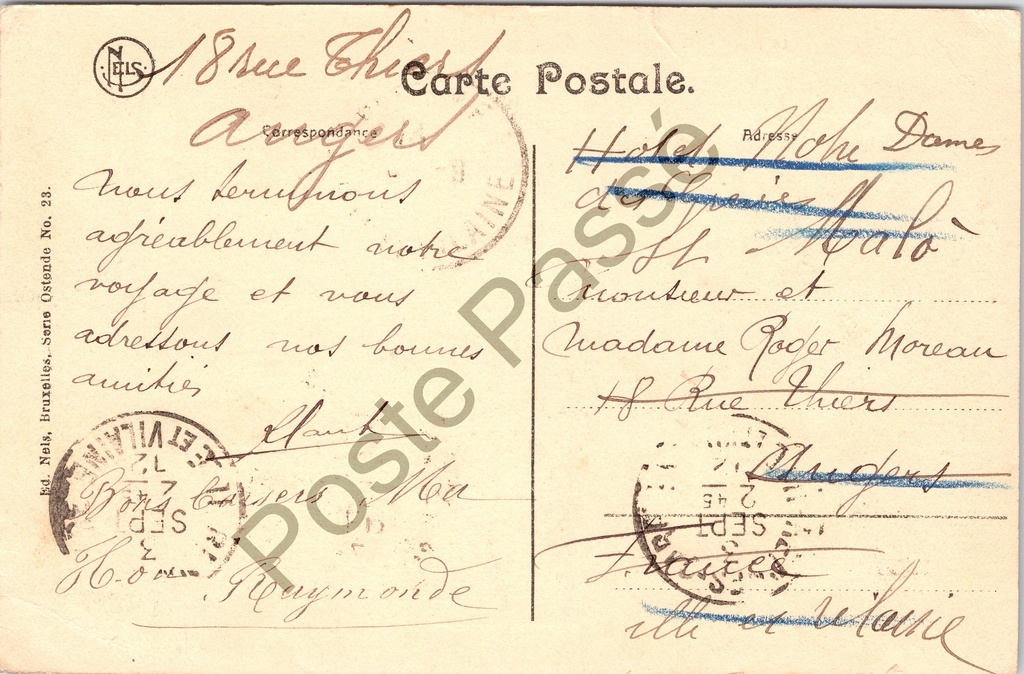 NELS
18 rue Thiers
Carte Postale.
Angers
Correspondance
nous terminons
agréablement notre
voyage et vous
adressons nos bonnes
amitiés
Bons baisers
Raymonde
Ed. Nels, Bruxelles, Serie Ostende No. 23.
Adresse
Hotel Notre Dames
des
St Malo
Monsieur et
Madame Roger Moreau
18 Rue Thiers
Angers
France
ille et vilaine
ET VILAINE
3
SEPT
SEPT
2 45
Poste Passé